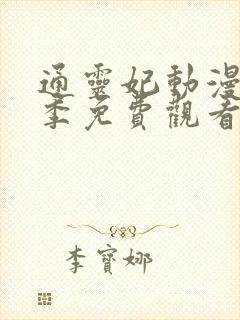 通靈妃動漫
季免費觀看
李寶娜